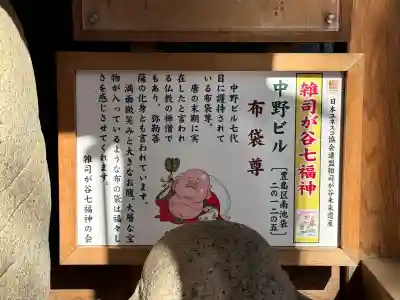 日本ユネスコ協会連盟雑司が谷未来遺産
雑司が谷七福神
中野ビル
[豊島区南池袋
二の一二の五]
布袋尊
中野ビル七代
目に護持されて
いる布袋尊。
唐の末期に実
在したと言われ
る仏教の禅僧で
もあり、弥勒菩
薩の化身とも言われています。
満面微笑みと大きなお腹、大層な宝
物が入っているような布の袋は福々し
さを感じさせてくれます。
雑司が谷七福神の会